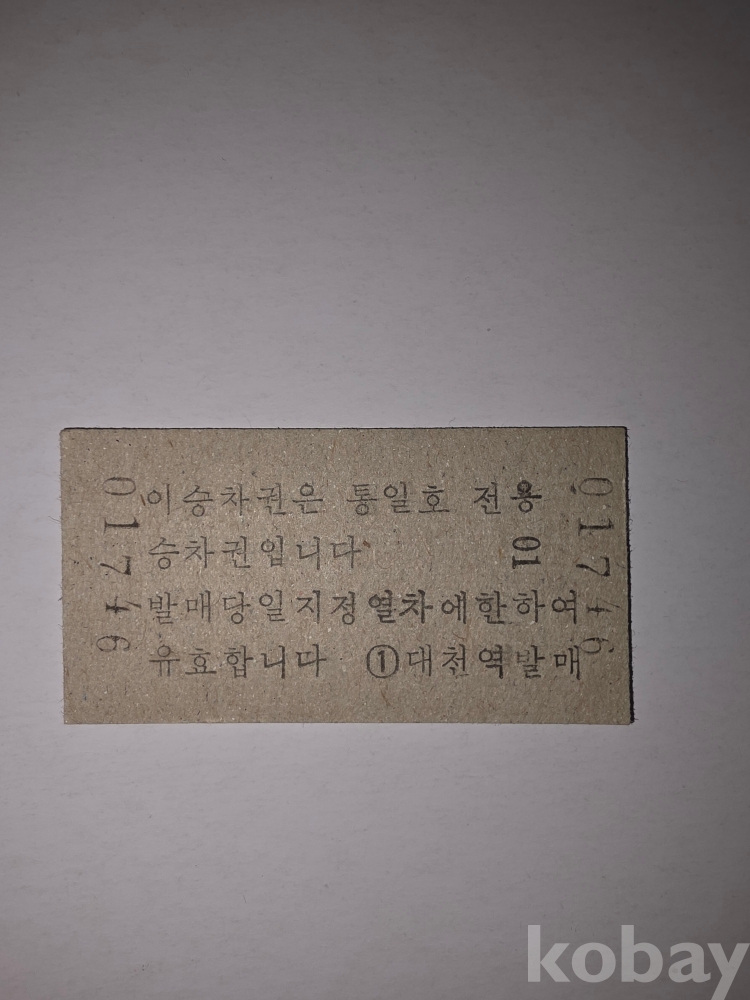 01746
이승차권은 통일호 전용
승차권입니다 01
발매당일지정열차에한하여
유효합니다 ①대천역발매
01746
kobay